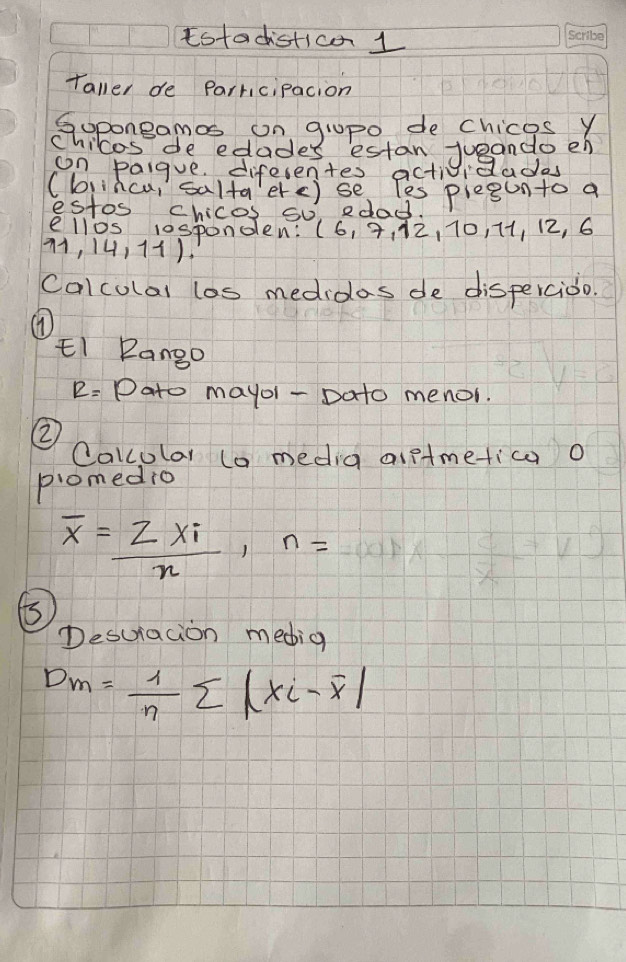 Estadistica 1
Scribe
Taller de Participacion
Supongamos un grupo de chicos y
chicos de edades estan jugando en
un parque. diferentes actividades
(brincar, salta etc) se les pregunto a
estos chicos su edad.
ellos responden: (6, 7, 12, 10, 11, 12, 6
11, 14, 11).
Calcular las medidas de dispercido.
① El Rango
R = Dato mayor - Dato menor.
② Calcular la media aritmetica o
promedio
x̄ = Σ xi / n , n =
③ Desviación media
Dm = 1/n Σ |xi - x̄|